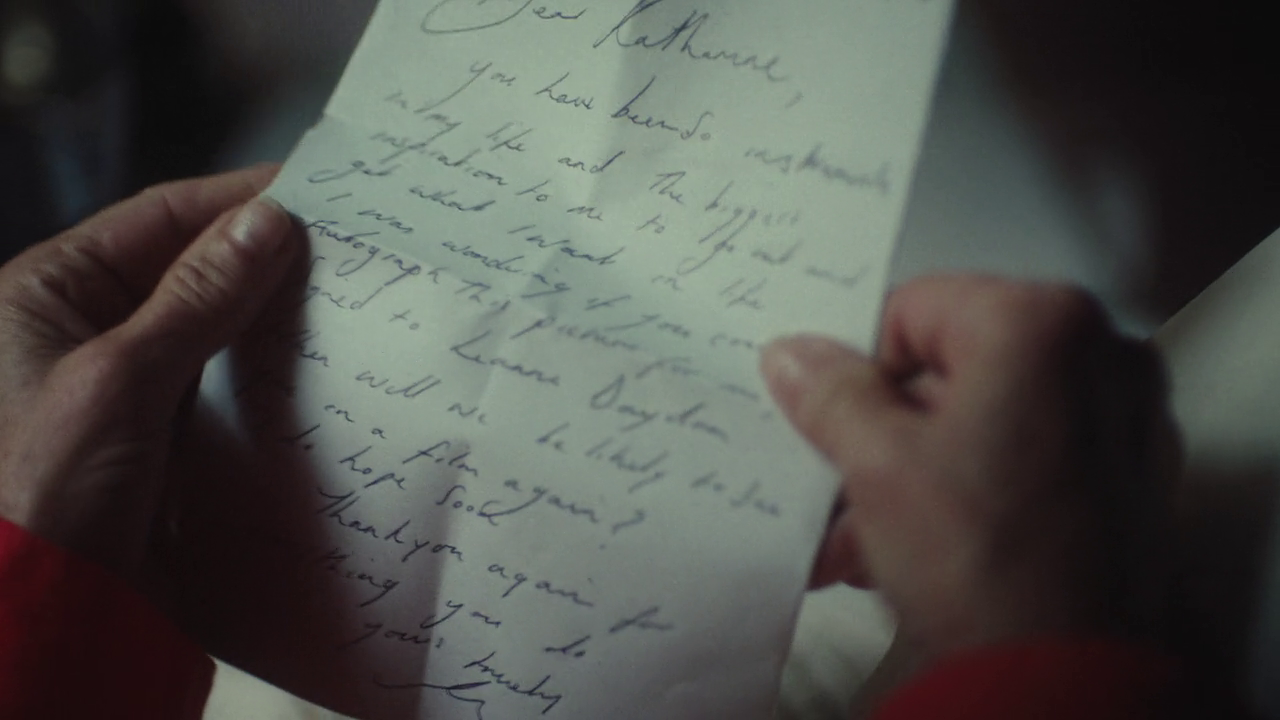 Dear Katherine,
you have been so
in my life and The biggest
inspiration to me to go out and
get what I want in life
I was wondering if you
Autograph This picture for me,
to Leanne Daydon
will we be likely to see
on a film again?
hope soon
Thankyou again for
thing you do
yours truely